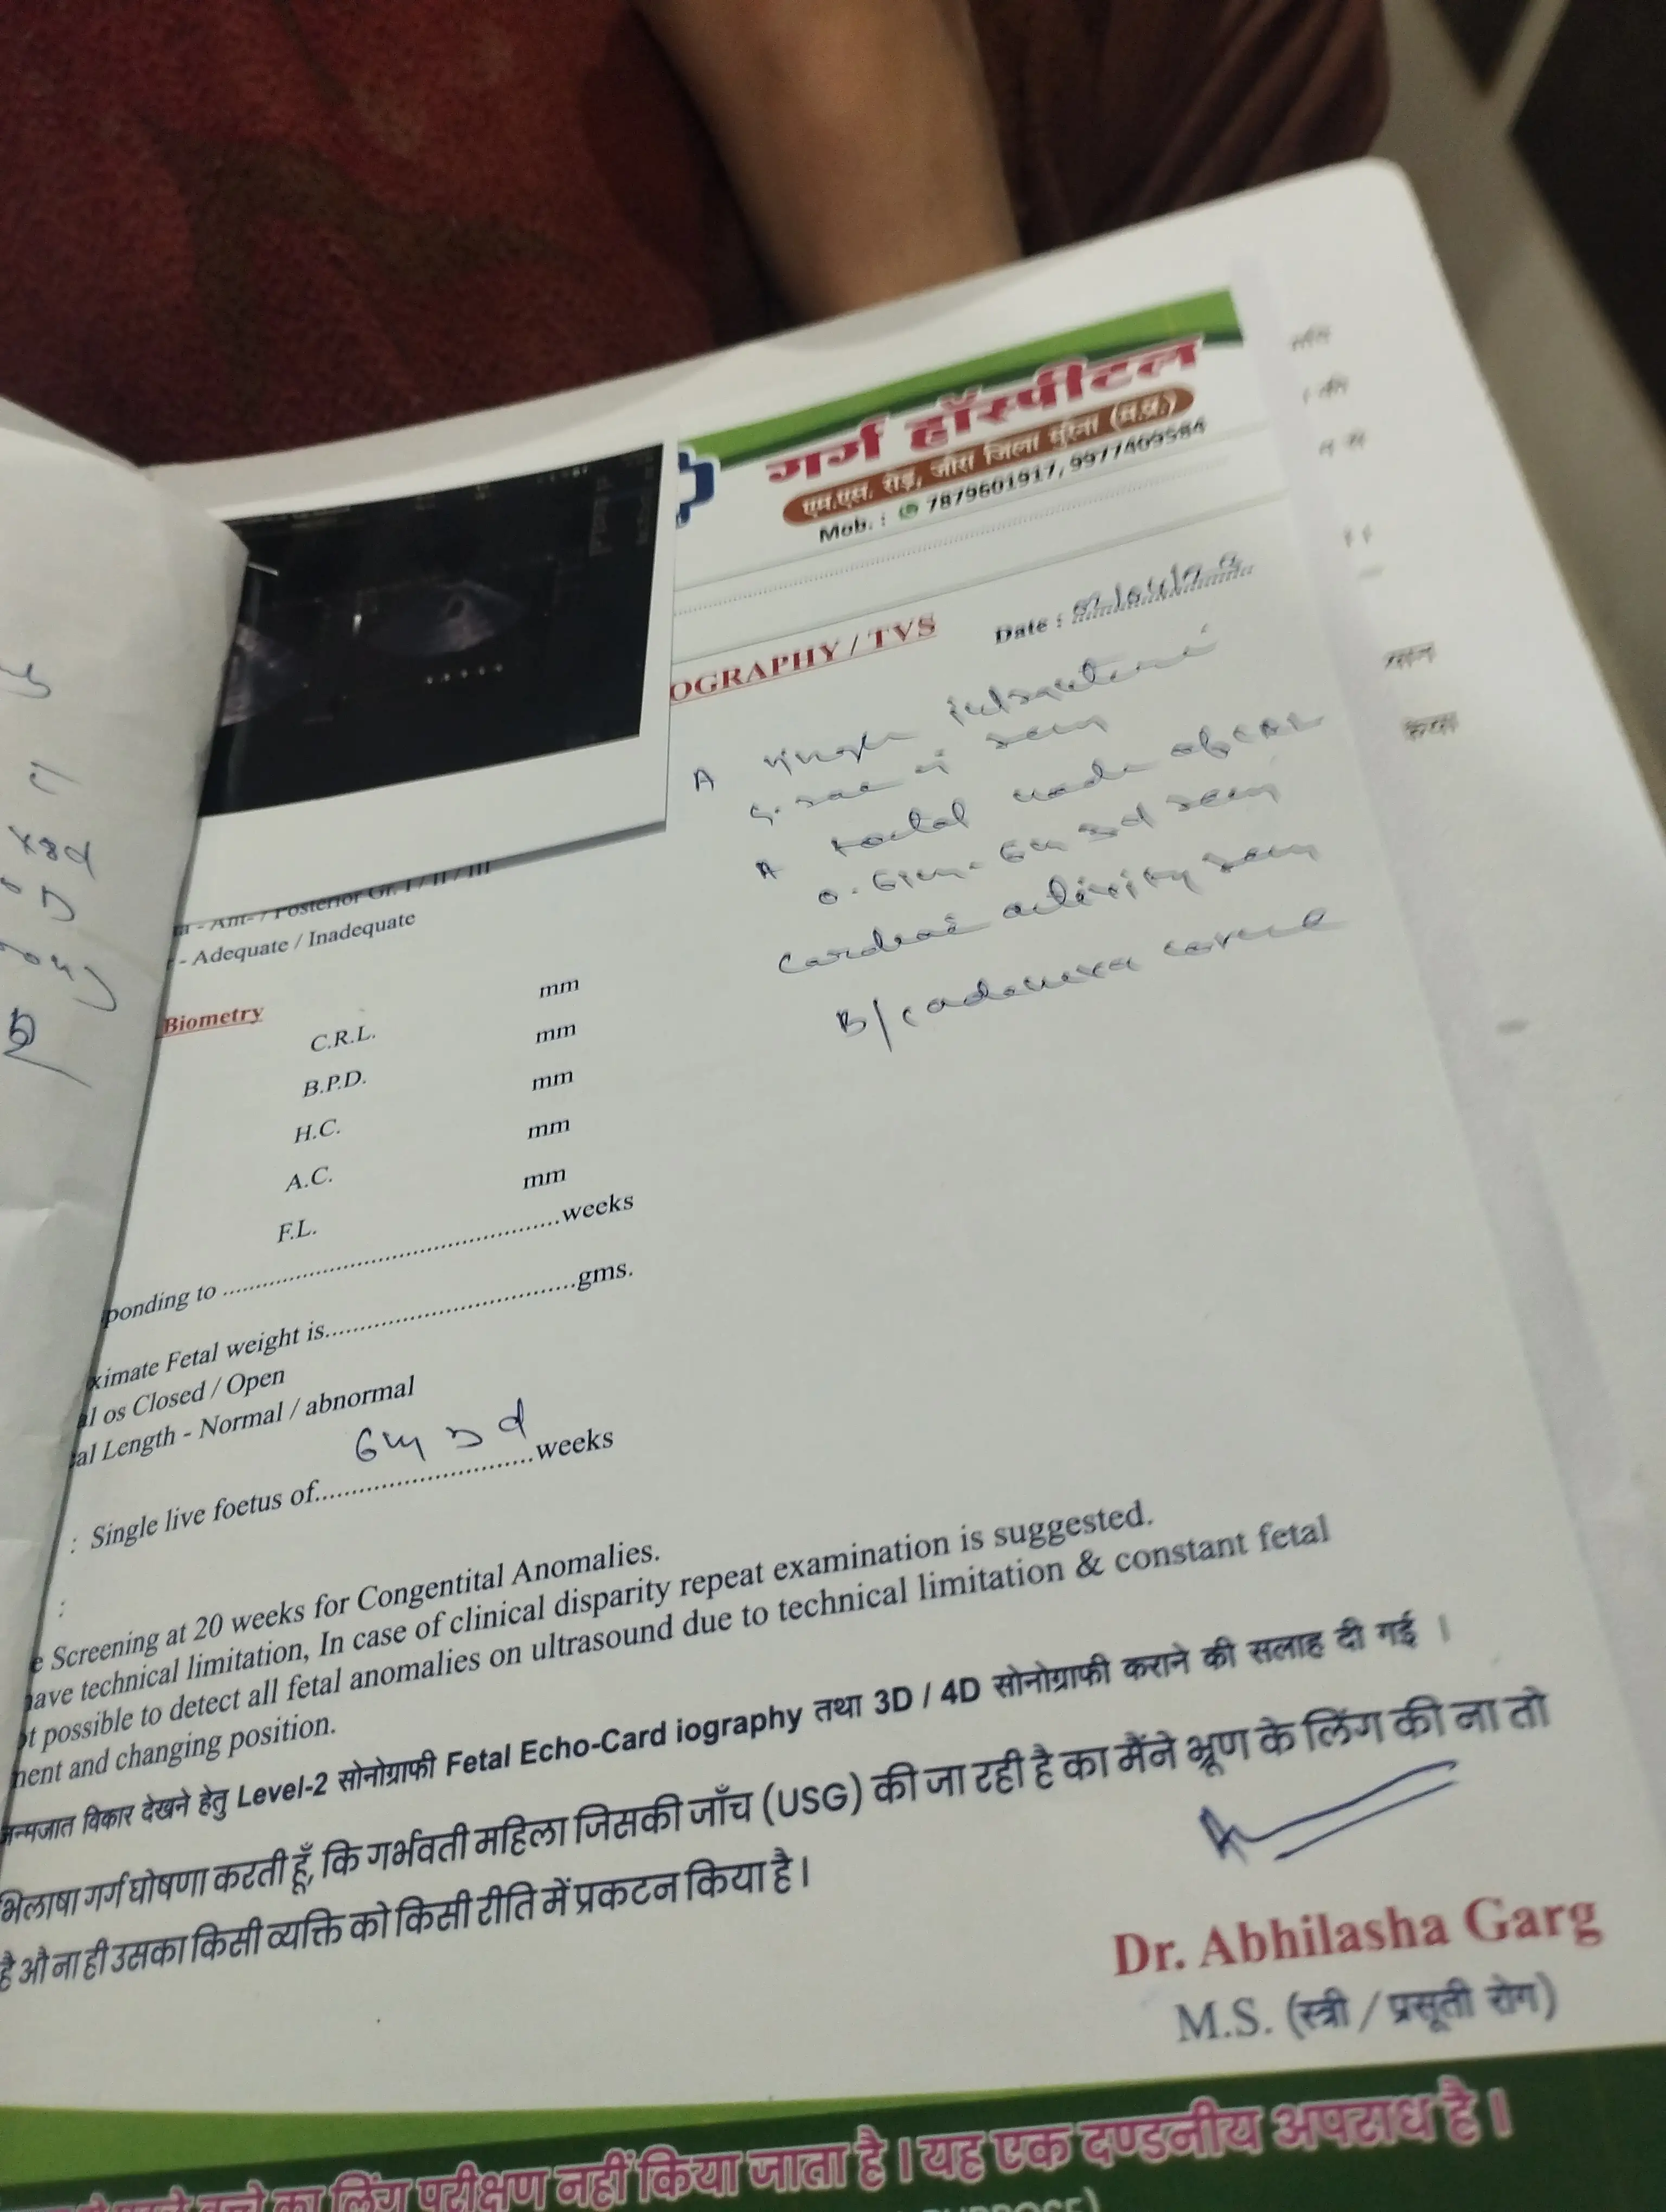 गर्ग हॉस्पीटल
एम.एस. रोड़, जौरा जिला मुरैना (म.प्र.)
Mob. : 7879601917, 9977409584
OGRAPHY / TVS
Date :
A single intrauterine
G. sac is seen
A foetal node of CRL
0.61cm - 6w 3d seen
cardiac activity seen
B/L adnexa
- Ant- / Posterior Gr. I / II / III
- Adequate / Inadequate
Biometry
mm
C.R.L.
mm
B.P.D.
mm
H.C.
mm
A.C.
mm
F.L.
ponding to ..........weeks
ximate Fetal weight is..........gms.
al os Closed / Open
al Length - Normal / abnormal
: Single live foetus of 6w 3d weeks
:
e Screening at 20 weeks for Congentital Anomalies.
have technical limitation, In case of clinical disparity repeat examination is suggested.
ot possible to detect all fetal anomalies on ultrasound due to technical limitation & constant fetal
ment and changing position.
न्मजात विकार देखने हेतु Level-2 सोनोग्राफी Fetal Echo-Card iography तथा 3D / 4D सोनोग्राफी कराने की सलाह दी गई ।
भिलाषा गर्ग घोषणा करती हूँ, कि गर्भवती महिला जिसकी जाँच (USG) की जा रही है का मैंने भ्रूण के लिंग की ना तो
है औ ना ही उसका किसी व्यक्ति को किसी रीति में प्रकटन किया है।
Dr. Abhilasha Garg
M.S. (स्त्री / प्रसूती रोग)
लिंग परीक्षण नहीं किया जाता है । यह एक दण्डनीय अपराध है ।